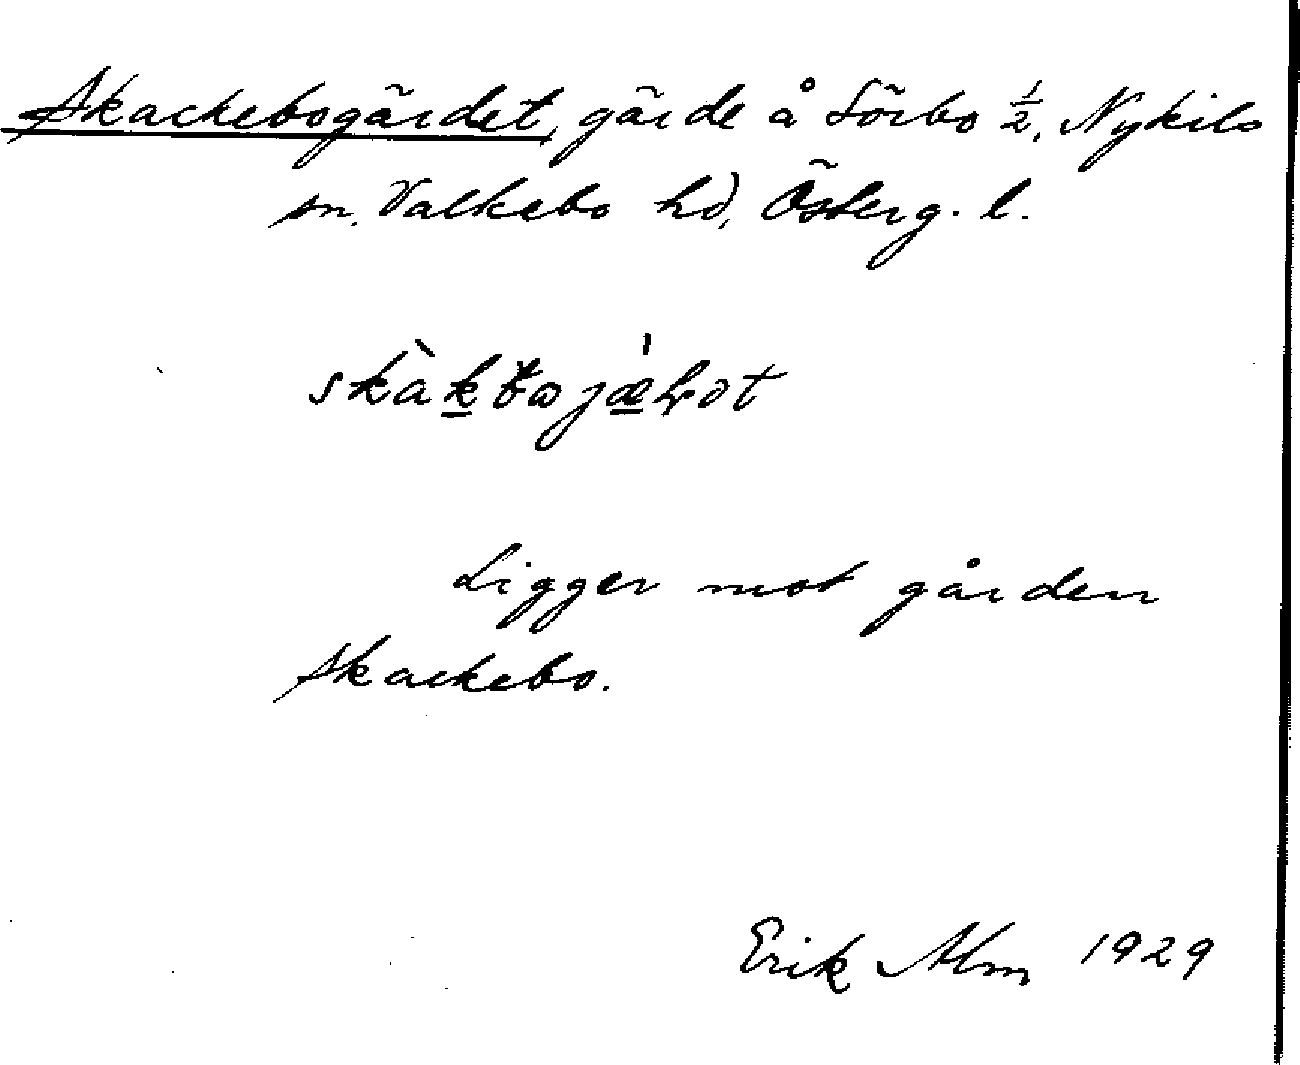 Skackebogärdet, gärde å Sörbo ½, Nykils
sn, Valkebo hd, Österg. l.
Ligger mot gården
Skackebo.
Erik Alm 1929